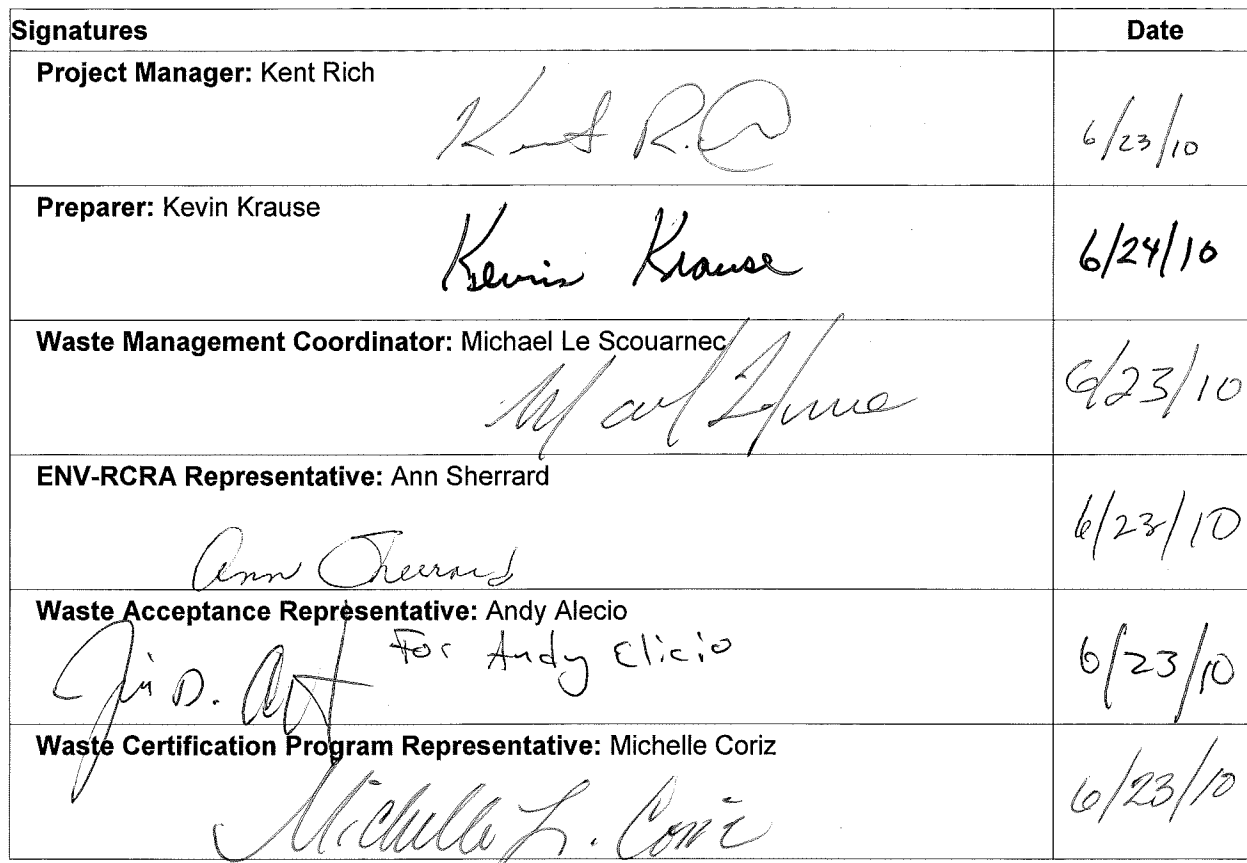 Signatures Date
Project Manager: Kent Rich
6/23/10
Preparer: Kevin Krause
Kevin Krause 6/24/10
Waste Management Coordinator: Michael Le Scouarnec
6/23/10
ENV-RCRA Representative: Ann Sherrard
Ann Sherrard 6/23/10
Waste Acceptance Representative: Andy Alecio
For Andy Elicio 6/23/10
Waste Certification Program Representative: Michelle Coriz
Michelle L. Coriz 6/23/10